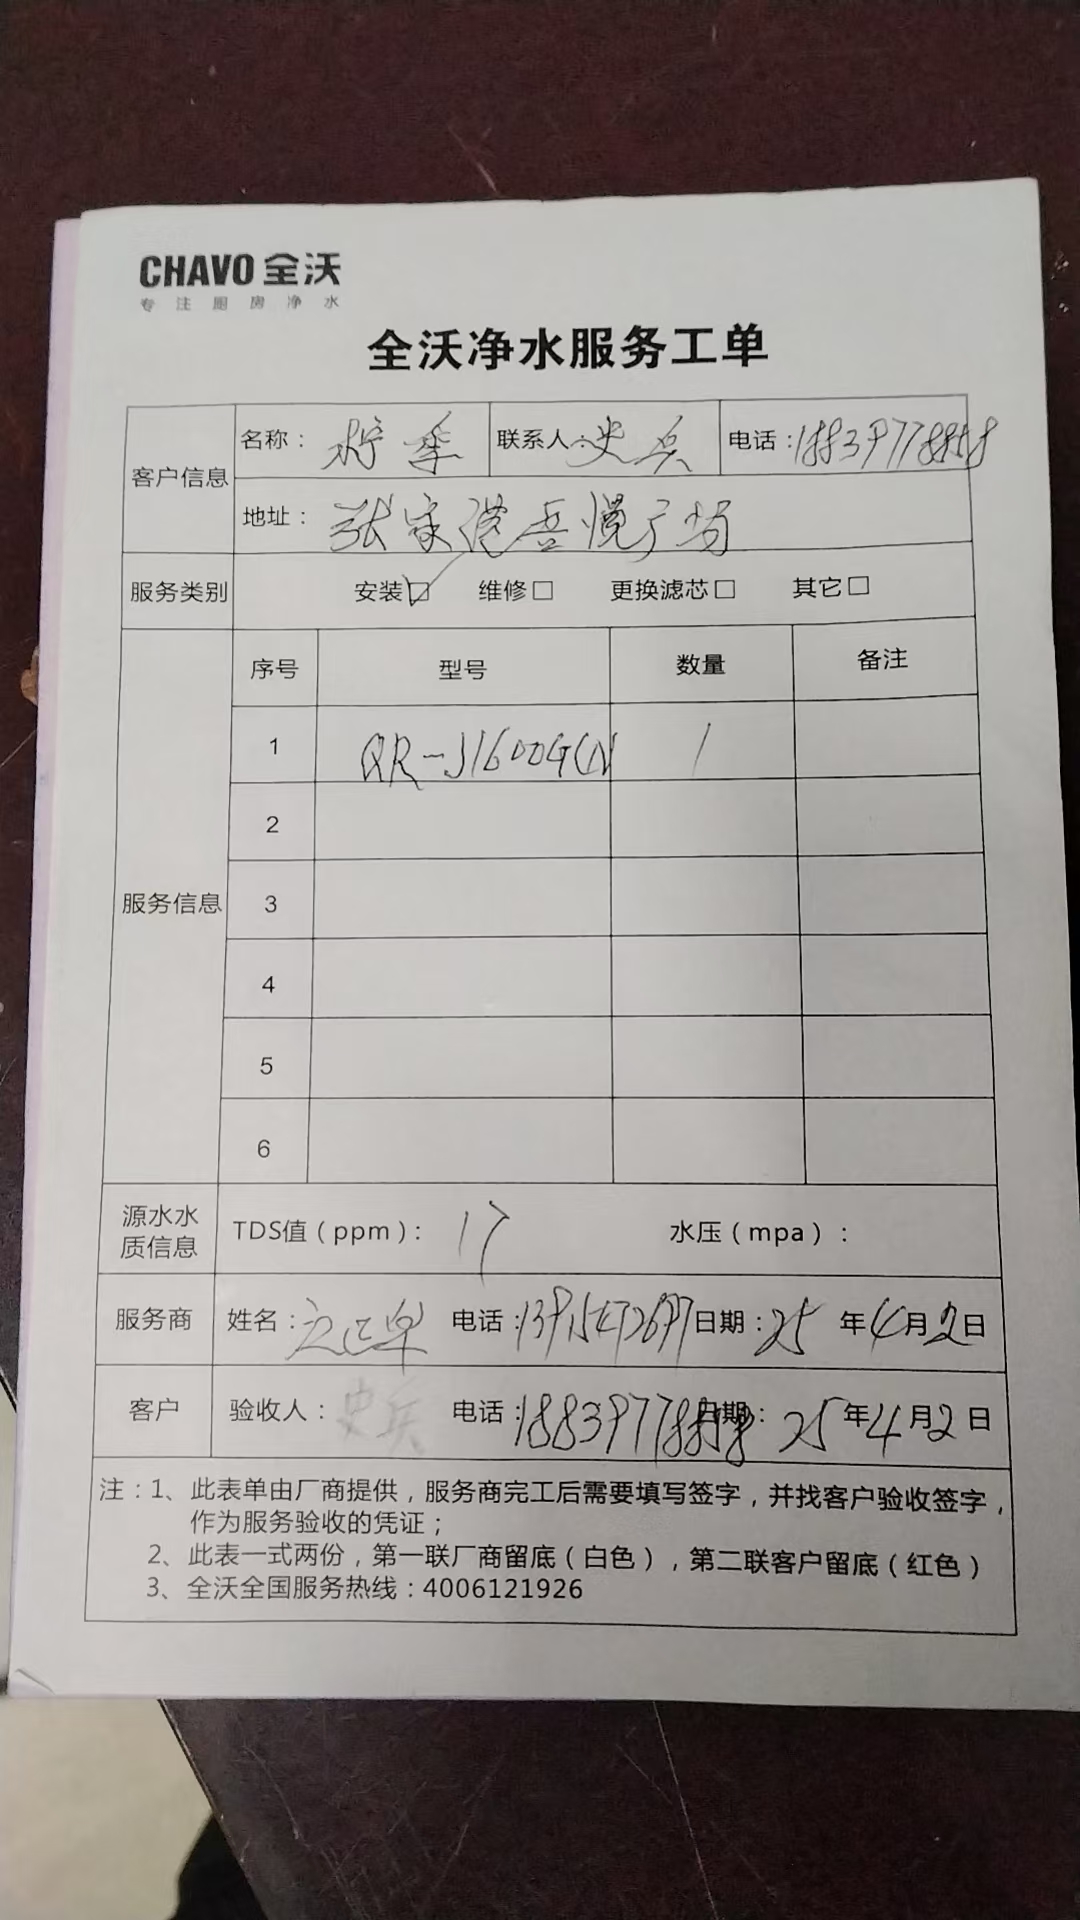 CHAVO 全沃
专注厨房净水
全沃净水服务工单
客户信息
名称： 柠季 联系人：史兵 电话：18839778858
地址： 张家港吾悦广场
服务类别 安装☑ 维修□ 更换滤芯□ 其它□
服务信息
序号 型号 数量 备注
1 QR-J1600GCN 1
2
3
4
5
6
源水水质信息 TDS值（ppm）： 17 水压（mpa）：
服务商 姓名： 电话： 日期：25 年 4 月 2 日
客户 验收人：史兵 电话：18839778858 日期：25 年 4 月 2 日
注：1、此表单由厂商提供，服务商完工后需要填写签字，并找客户验收签字，
作为服务验收的凭证；
2、此表一式两份，第一联厂商留底（白色），第二联客户留底（红色）
3、全沃全国服务热线：4006121926